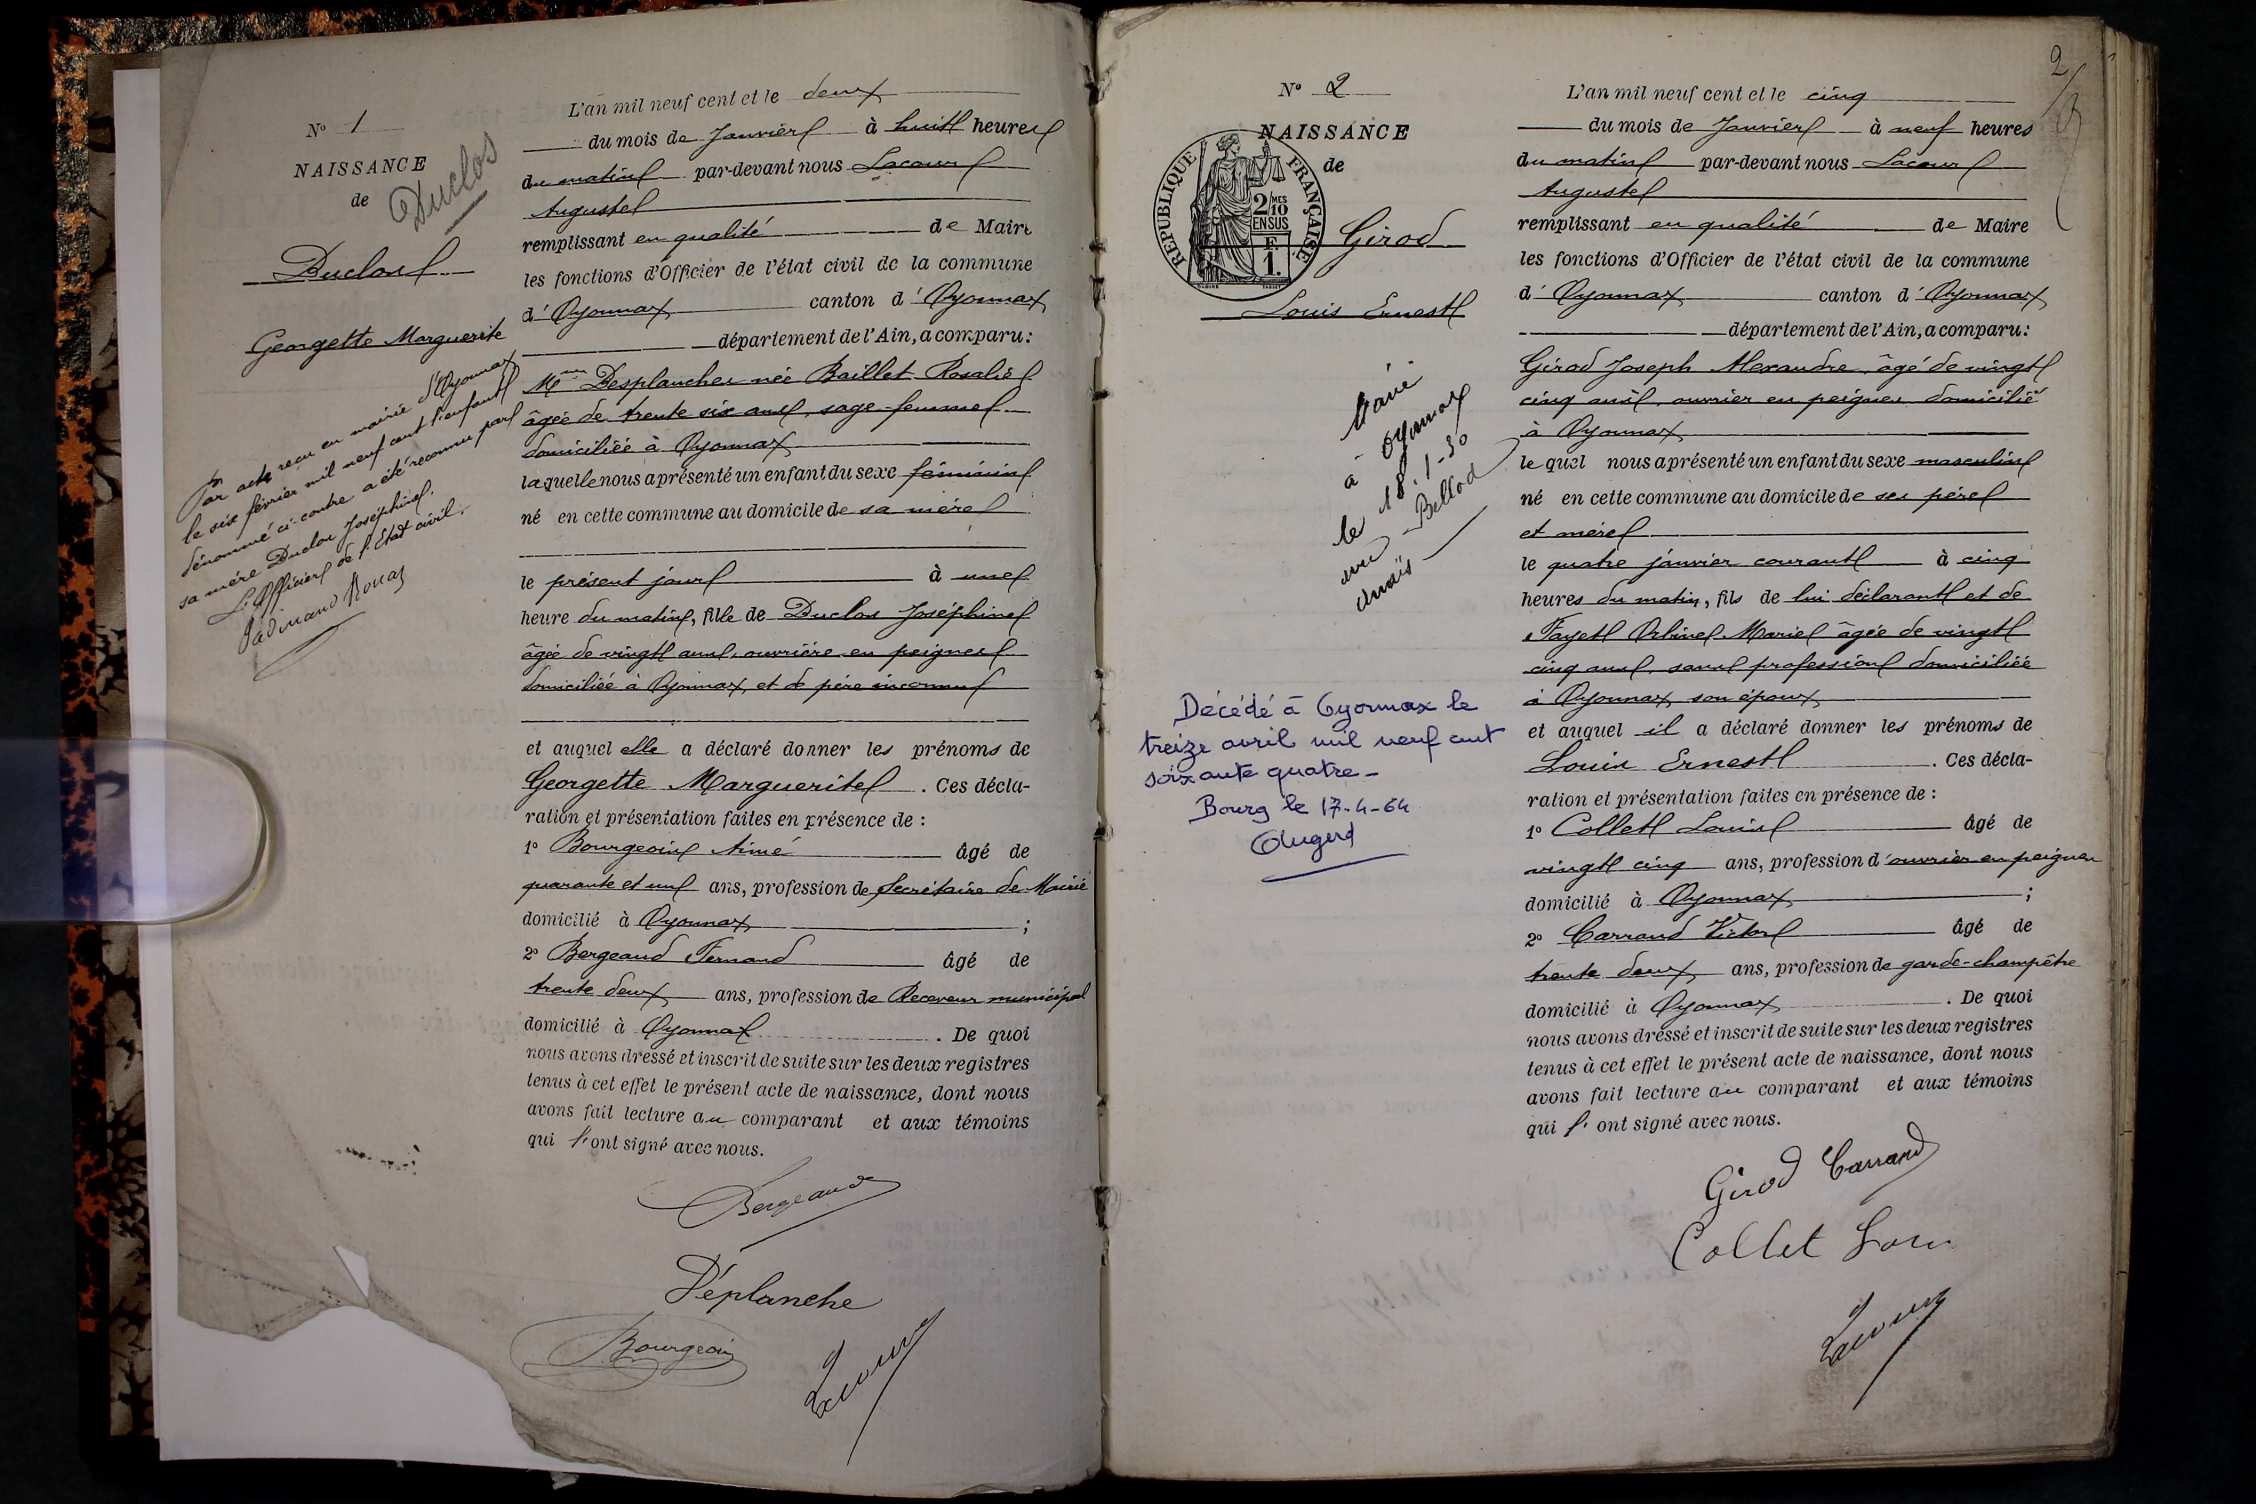 N° 1
NAISSANCE
de
Duclos
Duclos
Georgette Marguerite
Par acte reçu en mairie d'Oyonnax
le six février mil neuf cent l'enfant
dénommé ci-contre a été reconnu par
sa mère Duclos Joséphine.
L'Officier de l'Etat civil.
L'an mil neuf cent et le deux
du mois de Janvier à huit heures
du matin par-devant nous Lacour
Auguste
remplissant en qualité de Maire
les fonctions d'Officier de l'état civil de la commune
d'Oyonnax canton d'Oyonnax
département de l'Ain, a comparu:
Mme Desplanches née Baillet Rosalie
âgée de trente six ans, sage-femme
domiciliée à Oyonnax
laquelle nous a présenté un enfant du sexe féminin
né en cette commune au domicile de sa mère
le présent jour à une
heure du matin, fille de Duclos Joséphine
âgée de vingt ans, ouvrière en peignes
domiciliée à Oyonnax, et de père inconnu
et auquel elle a déclaré donner les prénoms de
Georgette Marguerite . Ces décla-
ration et présentation faites en présence de :
1° Bourgeois Aimé âgé de
quarante et un ans, profession de Secrétaire de Mairie
domicilié à Oyonnax ;
2° Bergeaud Fernand âgé de
trente deux ans, profession de Receveur municipal
domicilié à Oyonnax . De quoi
nous avons dressé et inscrit de suite sur les deux registres
tenus à cet effet le présent acte de naissance, dont nous
avons fait lecture au comparant et aux témoins
qui l'ont signé avec nous.
Bergeaud
Déplanche
Bourgeois
Lacour
2
N° 2
NAISSANCE
de
REPUBLIQUE FRANÇAISE
2/10 MES
EN SUS
F.
1.
Girod
Louis Ernest
Marié
à Oyonnax
le 18-1-30
avec Bellod
Anaïs
Décédé à Oyonnax le
treize avril mil neuf cent
soixante quatre -
Bourg le 17-4-64
L'an mil neuf cent et le cinq
du mois de Janvier à neuf heures
du matin par-devant nous Lacour
Auguste
remplissant en qualité de Maire
les fonctions d'Officier de l'état civil de la commune
d'Oyonnax canton d'Oyonnax
département de l'Ain, a comparu:
Girod Joseph Alexandre, âgé de vingt
cinq ans, ouvrier en peignes domicilié
à Oyonnax
lequel nous a présenté un enfant du sexe masculin
né en cette commune au domicile de ses père
et mère
le quatre janvier courant à cinq
heures du matin, fils de lui déclarant et de
Fayet Marie âgée de vingt
cinq ans, sans profession domiciliée
à Oyonnax, son époux
et auquel il a déclaré donner les prénoms de
Louis Ernest . Ces décla-
ration et présentation faites en présence de :
1° Collet Louis âgé de
vingt cinq ans, profession d'ouvrier en peignes
domicilié à Oyonnax ;
2° Carrand Victor âgé de
trente deux ans, profession de garde-champêtre
domicilié à Oyonnax . De quoi
nous avons dressé et inscrit de suite sur les deux registres
tenus à cet effet le présent acte de naissance, dont nous
avons fait lecture au comparant et aux témoins
qui l'ont signé avec nous.
Girod Carrand
Collet Louis
Lacour